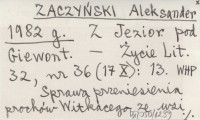 ZACZYŃSKI Aleksander
1982 g. Z Jezior pod
Giewont. — Życie Lit.
32, nr 36 (17 X): 13. WHP
Sprawa przeniesienia
prochów Witkacego ze wsi